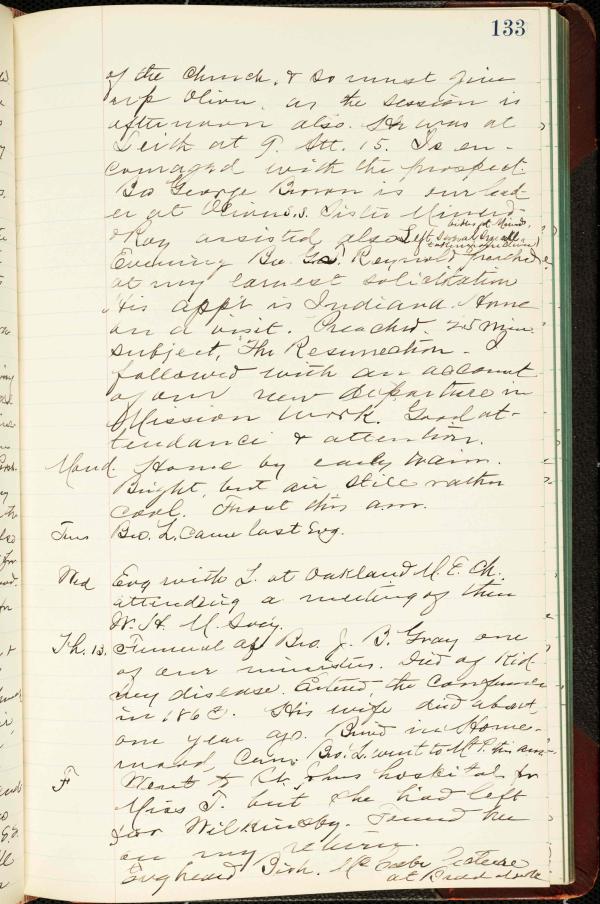 133
of the Church, & so must give
up Oliver, as the session is
afternoon also. He was at
Leith at P. Att. 15. Is en-
couraged with the prospect.
Bro George Brown is our lead
er at S.S. Sister
& Ray assisted also Left several
Evening Bro. Geo. Reynold preached
at my earnest solicitation
His app't is Indiana. Home
on a visit. Preached. 25 Min.
subject, The Resurrection. I
followed with an account
of our new departure in
Mission Work. Good at-
tendance & attention.
Mond. Home by early train.
Bright, but air still rather
cool. Frost this am.
Tues Bro. L. came last Evg.
Wed Evg with L. at Oakland M. E. Ch.
attending a meeting of their
W. H. M. Socy.
Th. 13. Funeral of Bro. J. B. Gray one
of our ministers. Died of Kid-
ney disease. Entered the Conference
in 1868. His wife died about
one year ago. Buried in Home-
wood Cem. Bro. L. went to Mt P. this am
F Went to St. Johns hospital for
Miss T. but she had left
for Wilkinsbg. Found her
on my return.
Evg heard Bish. McCabe lecture
at Braddock